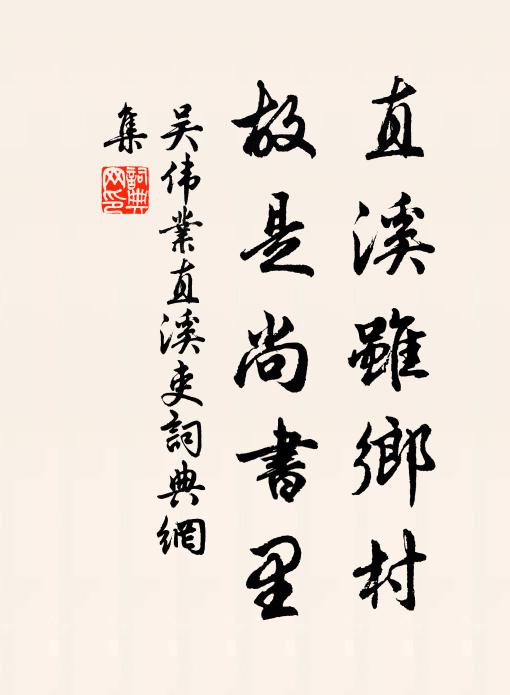 直溪雖鄉村
故是尚書里
吴伟業直溪吏詞典網
集
詞典
网印